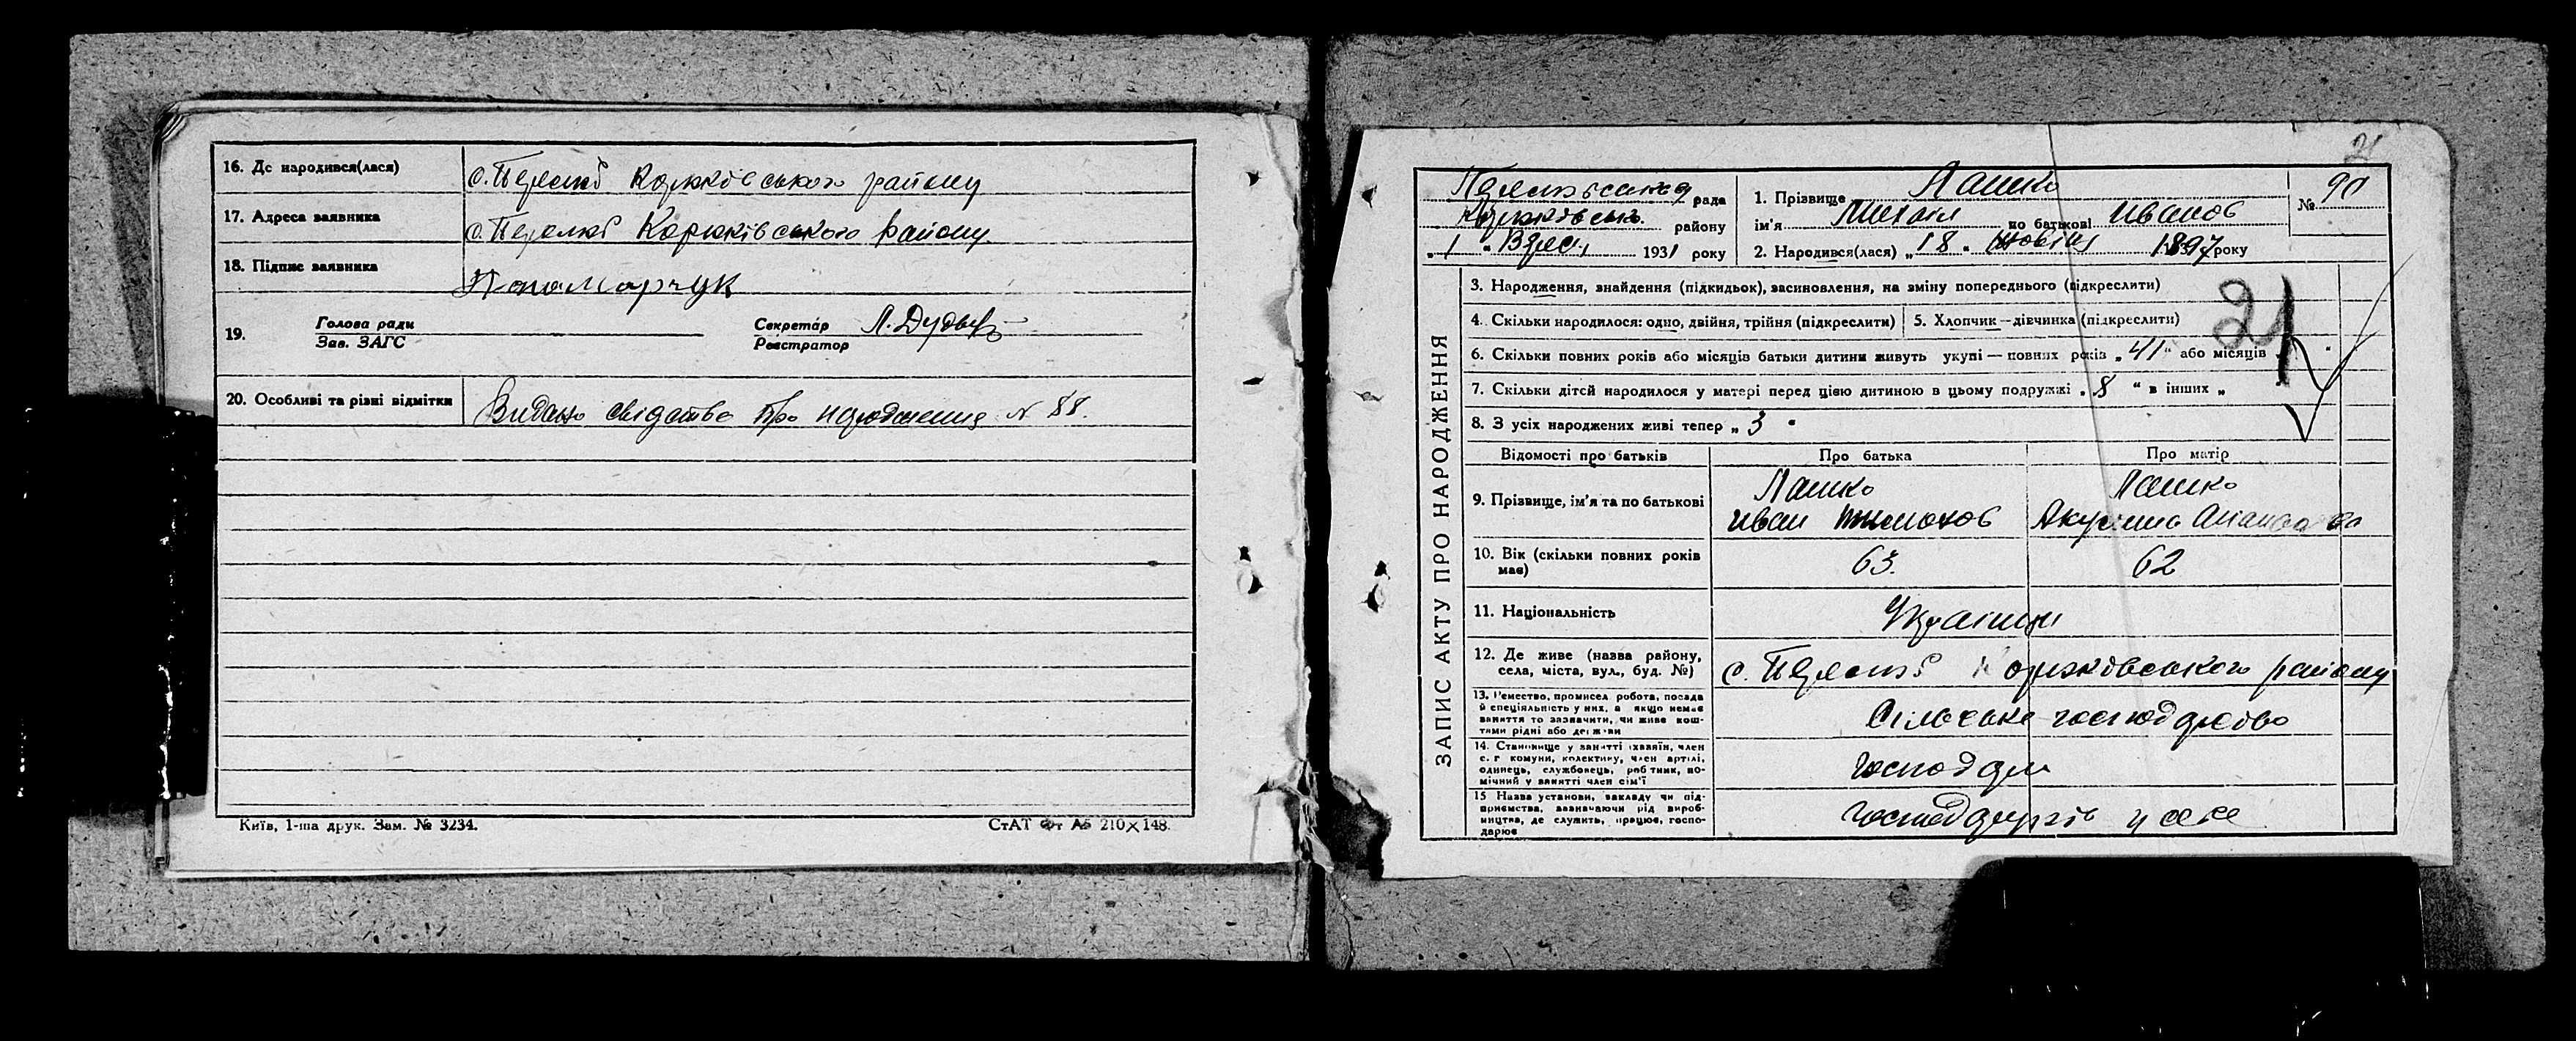 16. Де народився(лася)
с. Перелюб Корюківського району
17. Адреса заявника
с. Перелюб Корюківського району
18. Підпис заявника
Пономарчук
19. Голова ради
Зав. ЗАГС
Секретар
Реєстратор
20. Особливі та різні відмітки
Видано свідоцтво про народження № 88.
Київ, 1-ша друк. Зам. № 3234.
СтАТ Фт А5 210×148.
21
рада
Корюківськ. району
"1" Верес. 1931 року
1. Прізвище Пашко
ім'я Михаіл по батькові Иванов
2. Народився(лася) "18" 1897 року
№ 90
ЗАПИС АКТУ ПРО НАРОДЖЕННЯ
3. Народження, знайдення (підкидьок), засиновлення, на зміну попереднього (підкреслити)
21
4. Скільки народилося: одно, двійня, трійня (підкреслити)
5. Хлопчик—дівчинка (підкреслити)
6. Скільки повних років або місяців батьки дитини живуть укупі — повних років "41" або місяців
7. Скільки дітей народилося у матері перед цією дитиною в цьому подружжі "8" в інших "
8. З усіх народжених живі тепер "3"
Відомості про батьків
Про батька
Про матір
9. Прізвище, ім'я та по батькові
Пашко
Иван
Пашко
10. Вік (скільки повних років має)
63.
62
11. Національність
Українці
12. Де живе (назва району,
села, міста, вул., буд. №)
с. Перелюб Корюківського району
13. Ремество, промисел, робота, посада
й спеціяльність у них, а якщо немає
заняття то зазначити, чи живе кош-
тами рідні або держави
Сільське господарство
14. Становище у занятті (хазяїн, член
с.г комуни, колективу, член артілі,
одинець, службовець, робітник, по-
мічний у занятті член сім'ї
Господар
15 Назва установи, закладу чи під-
приємства, зазначаючи рід вироб-
ництва, де служить, працює, госпо-
дарює